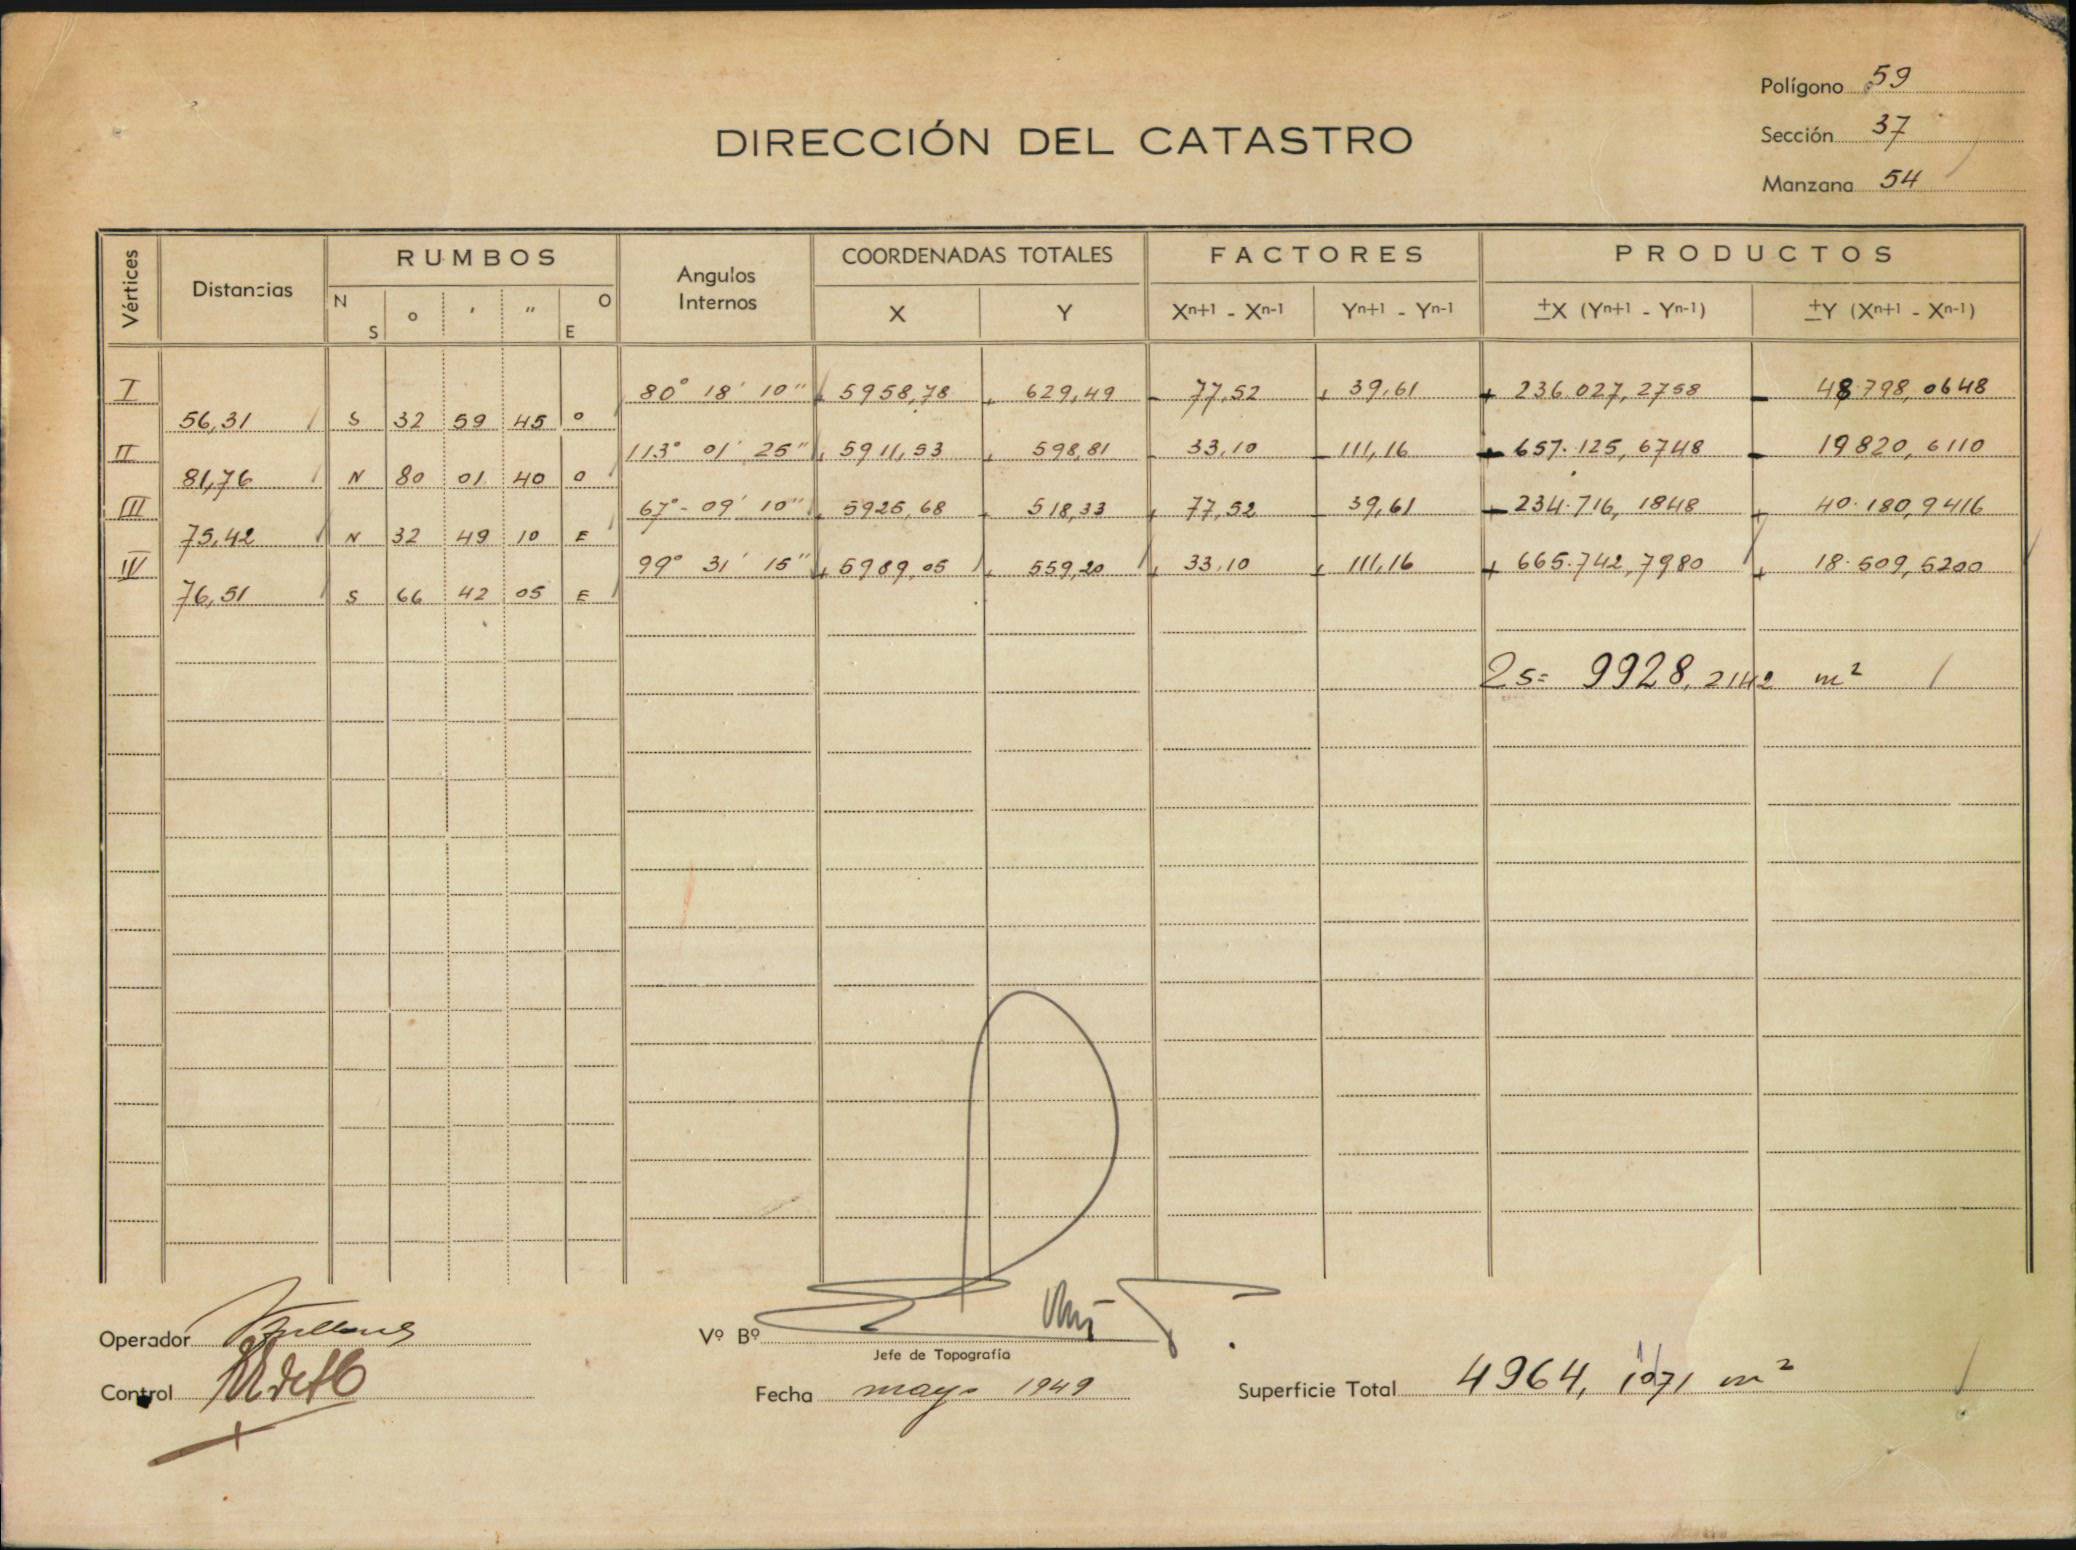 Polígono 59
DIRECCIÓN DEL CATASTRO
Sección 37
Manzana 54
Vértices Distancias RUMBOS Angulos Internos COORDENADAS TOTALES FACTORES PRODUCTOS
N S o ' " O E X Y Xn+1 - Xn-1 Yn+1 - Yn-1 ±X (Yn+1 - Yn-1) ±Y (Xn+1 - Xn-1)
I 80° 18' 10" + 5958,78 + 629,49 - 77,52 + 39,61 + 236.027,2758 - 48.798,0648
56,31 S 32 59 45 O
II 113° 01' 25" + 5911,53 + 598,81 - 33,10 - 111,16 - 657.125,6748 - 19820,6110
81,76 N 80 01 40 O
III 67°- 09' 10" + 5925,68 + 518,33 + 77,52 - 39,61 - 234.716,1848 + 40.180,9416
75,42 N 32 49 10 E
IV 99° 31' 15" + 5989,05 + 559,20 + 33,10 + 111,16 + 665.742,7980 + 18.509,5200
76,51 S 66 42 05 E
2s= 9928,2142 m²
Operador
Vº Bº
Jefe de Topografía
Control
Fecha mayo 1949
Superficie Total 4964,1071 m²